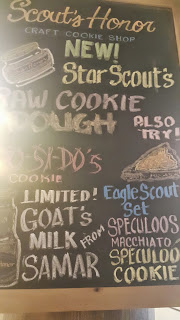 Scout's Honor
CRAFT COOKIE SHOP
NEW!
Star Scout's
RAW COOKIE
DOUGH
ALSO
TRY!
O-SI-DO'S
COOKIE
LIMITED!
GOAT'S
MILK FROM
SAMAR
Eagle Scout
Set
SPECULOOS
MACCHIATO
SPECULOO
COOKIE